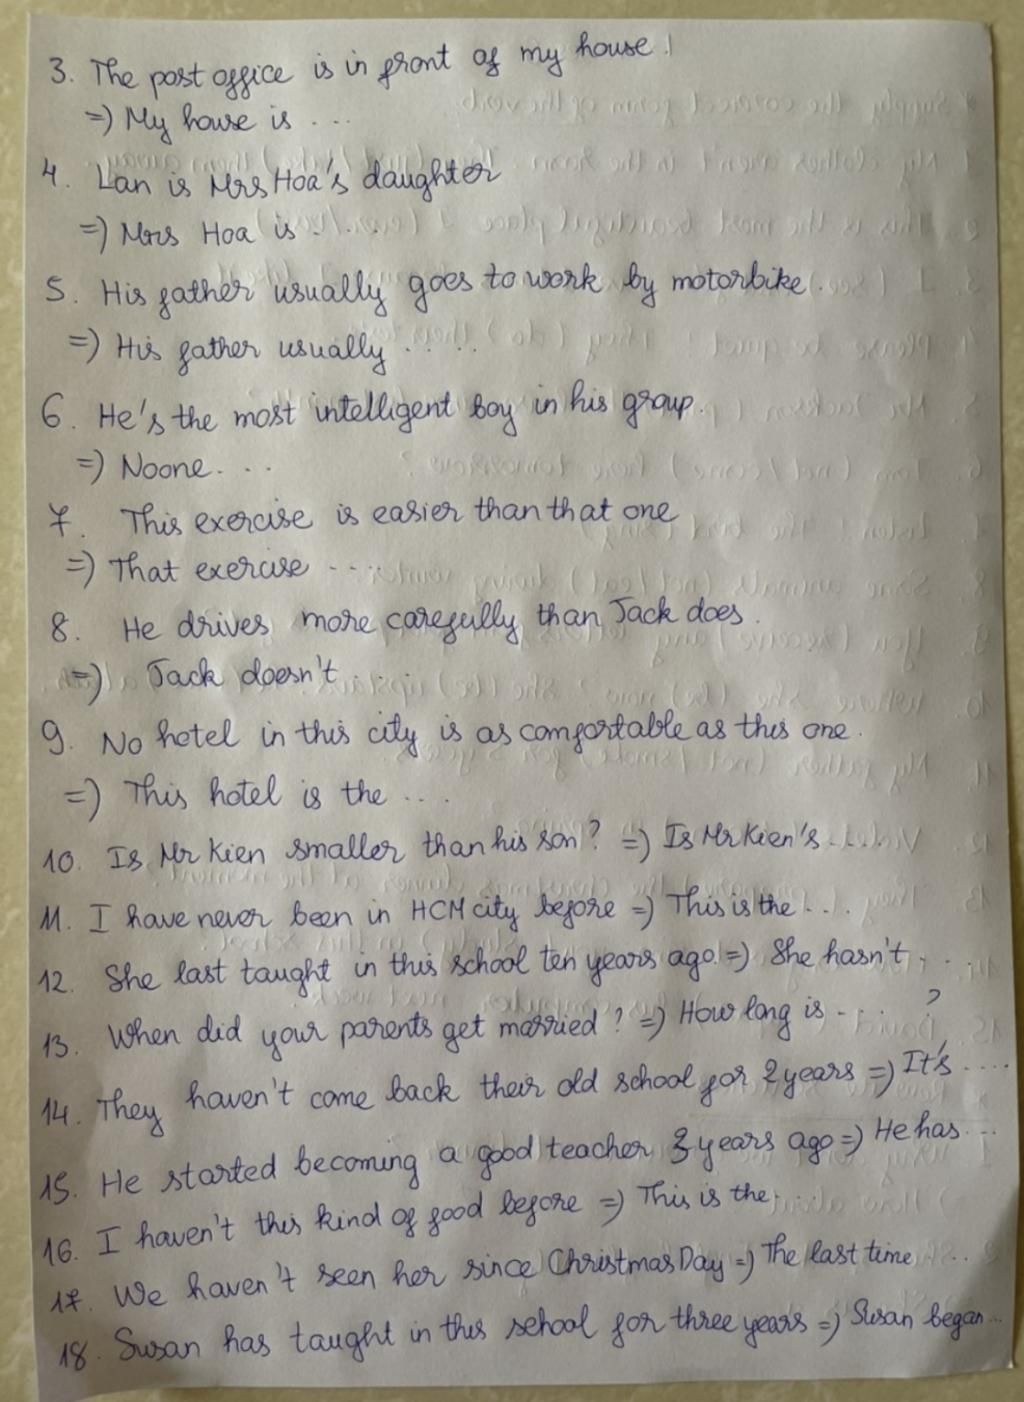 3. The post office is in front of my house.
=) My house is ....
4. Lan is Mrs Hoa's daughter
=) Mrs Hoa is ....
5. His father usually goes to work by motorbike.
=) His father usually .....
6. He's the most intelligent boy in his group.
=) Noone....
7. This exercise is easier than that one
=) That exercise ....
8. He drives more carefully than Jack does.
=) Jack doesn't ....
9. No hotel in this city is as comfortable as this one.
=) This hotel is the ....
10. Is Mr Kien smaller than his son? =) Is Mr Kien's ....
11. I have never been in HCM city before =) This is the ....
12. She last taught in this school ten years ago. =) She hasn't ....
13. When did your parents get married? =) How long is ....?
14. They haven't come back their old school for 2 years =) It's ....
15. He started becoming a good teacher 3 years ago =) He has ...
16. I haven't this kind of food before =) This is the ..
17. We haven't seen her since Christmas Day =) The last time ...
18. Susan has taught in this school for three years =) Susan began...